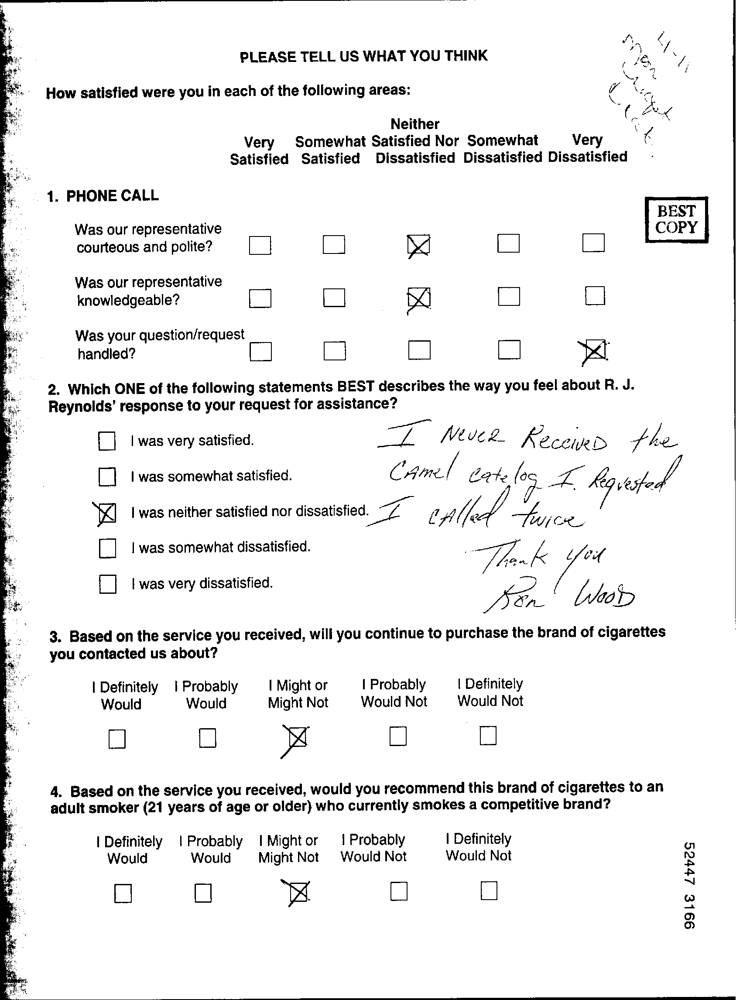 PLEASE TELL US WHAT YOU THINK
4-11
How satisfied were you in each of the following areas:
Neither
Very Somewhat Satisfied Nor Somewhat Very
Satisfied Satisfied Dissatisfied Dissatisfied Dissatisfied
1. PHONE CALL
BEST
COPY
Was our representative
courteous and polite?
Was our representative
knowledgeable?
Was your question/request
handled?
2. Which ONE of the following statements BEST describes the way you feel about R. J.
Reynolds' response to your request for assistance?
I was very satisfied.
I was somewhat satisfied.
I was neither satisfied nor dissatisfied.
I was somewhat dissatisfied.
I was very dissatisfied.
I Never Received the
Camel catelog I Requested
I called twice
Thank you
Ron Wood
3. Based on the service you received, will you continue to purchase the brand of cigarettes
you contacted us about?
I Definitely I Probably I Might or I Probably I Definitely
Would Would Might Not Would Not Would Not
4. Based on the service you received, would you recommend this brand of cigarettes to an
adult smoker (21 years of age or older) who currently smokes a competitive brand?
I Definitely I Probably I Might or I Probably I Definitely
Would Would Might Not Would Not Would Not
52447 3166